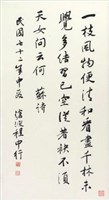 一枝風物便清和看盡千林未
覺多結習已空從著袂不須
天女問云何 蘇詩
民國七十二年中 滄波程中行